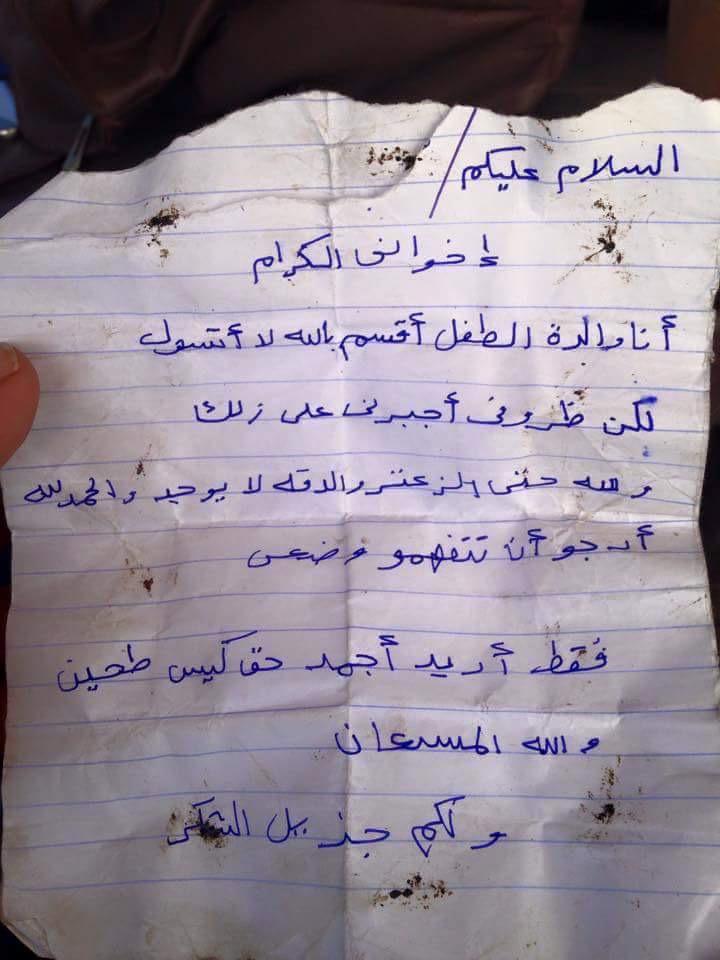 السلام عليكم /
إخواني الكرام
أنا والدة الطفل أقسم بالله لا أتسول
لكن ظروفي أجبرني على زلك
والله حتى الزعتر والدقه لا يوجد والحمدلله
أرجو أن تتفهمو وضعي
فقط أريد أجمد حق كيس طحين
والله المسعان
ولكم جزيل الشكر